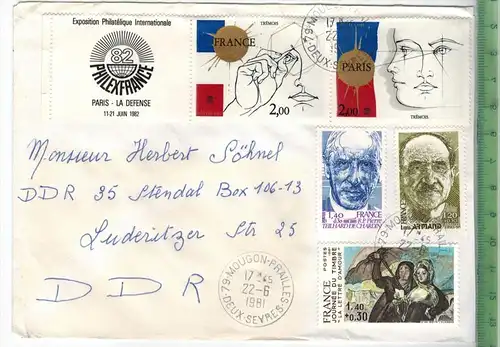 Exposition Philatélique Internationale
82
PHILEXFRANCE
PARIS - LA DEFENSE
11-21 JUIN 1982
FRANCE
2,00
TRÉMOIS
PARIS
2,00
TRÉMOIS
79-MOUGON-PRAILLES
22-6
1981
-DEUX-SEVRES-
Monsieur Herbert Söhnel
DDR 35 Stendal Box 106-13
Luderitzer Str 25
DDR
1,40 FRANCE
R.P. Pierre
TEILHARD DE CHARDIN
1,20
Louis ARMAND
79-MOUGON-PRAILLES
17 H 45
22-6
1981
-DEUX-SEVRES-
22-6
POSTES
FRANCE
JOURNEE DU TIMBRE
"LA LETTRE D'AMOUR"
1,40
+0,30